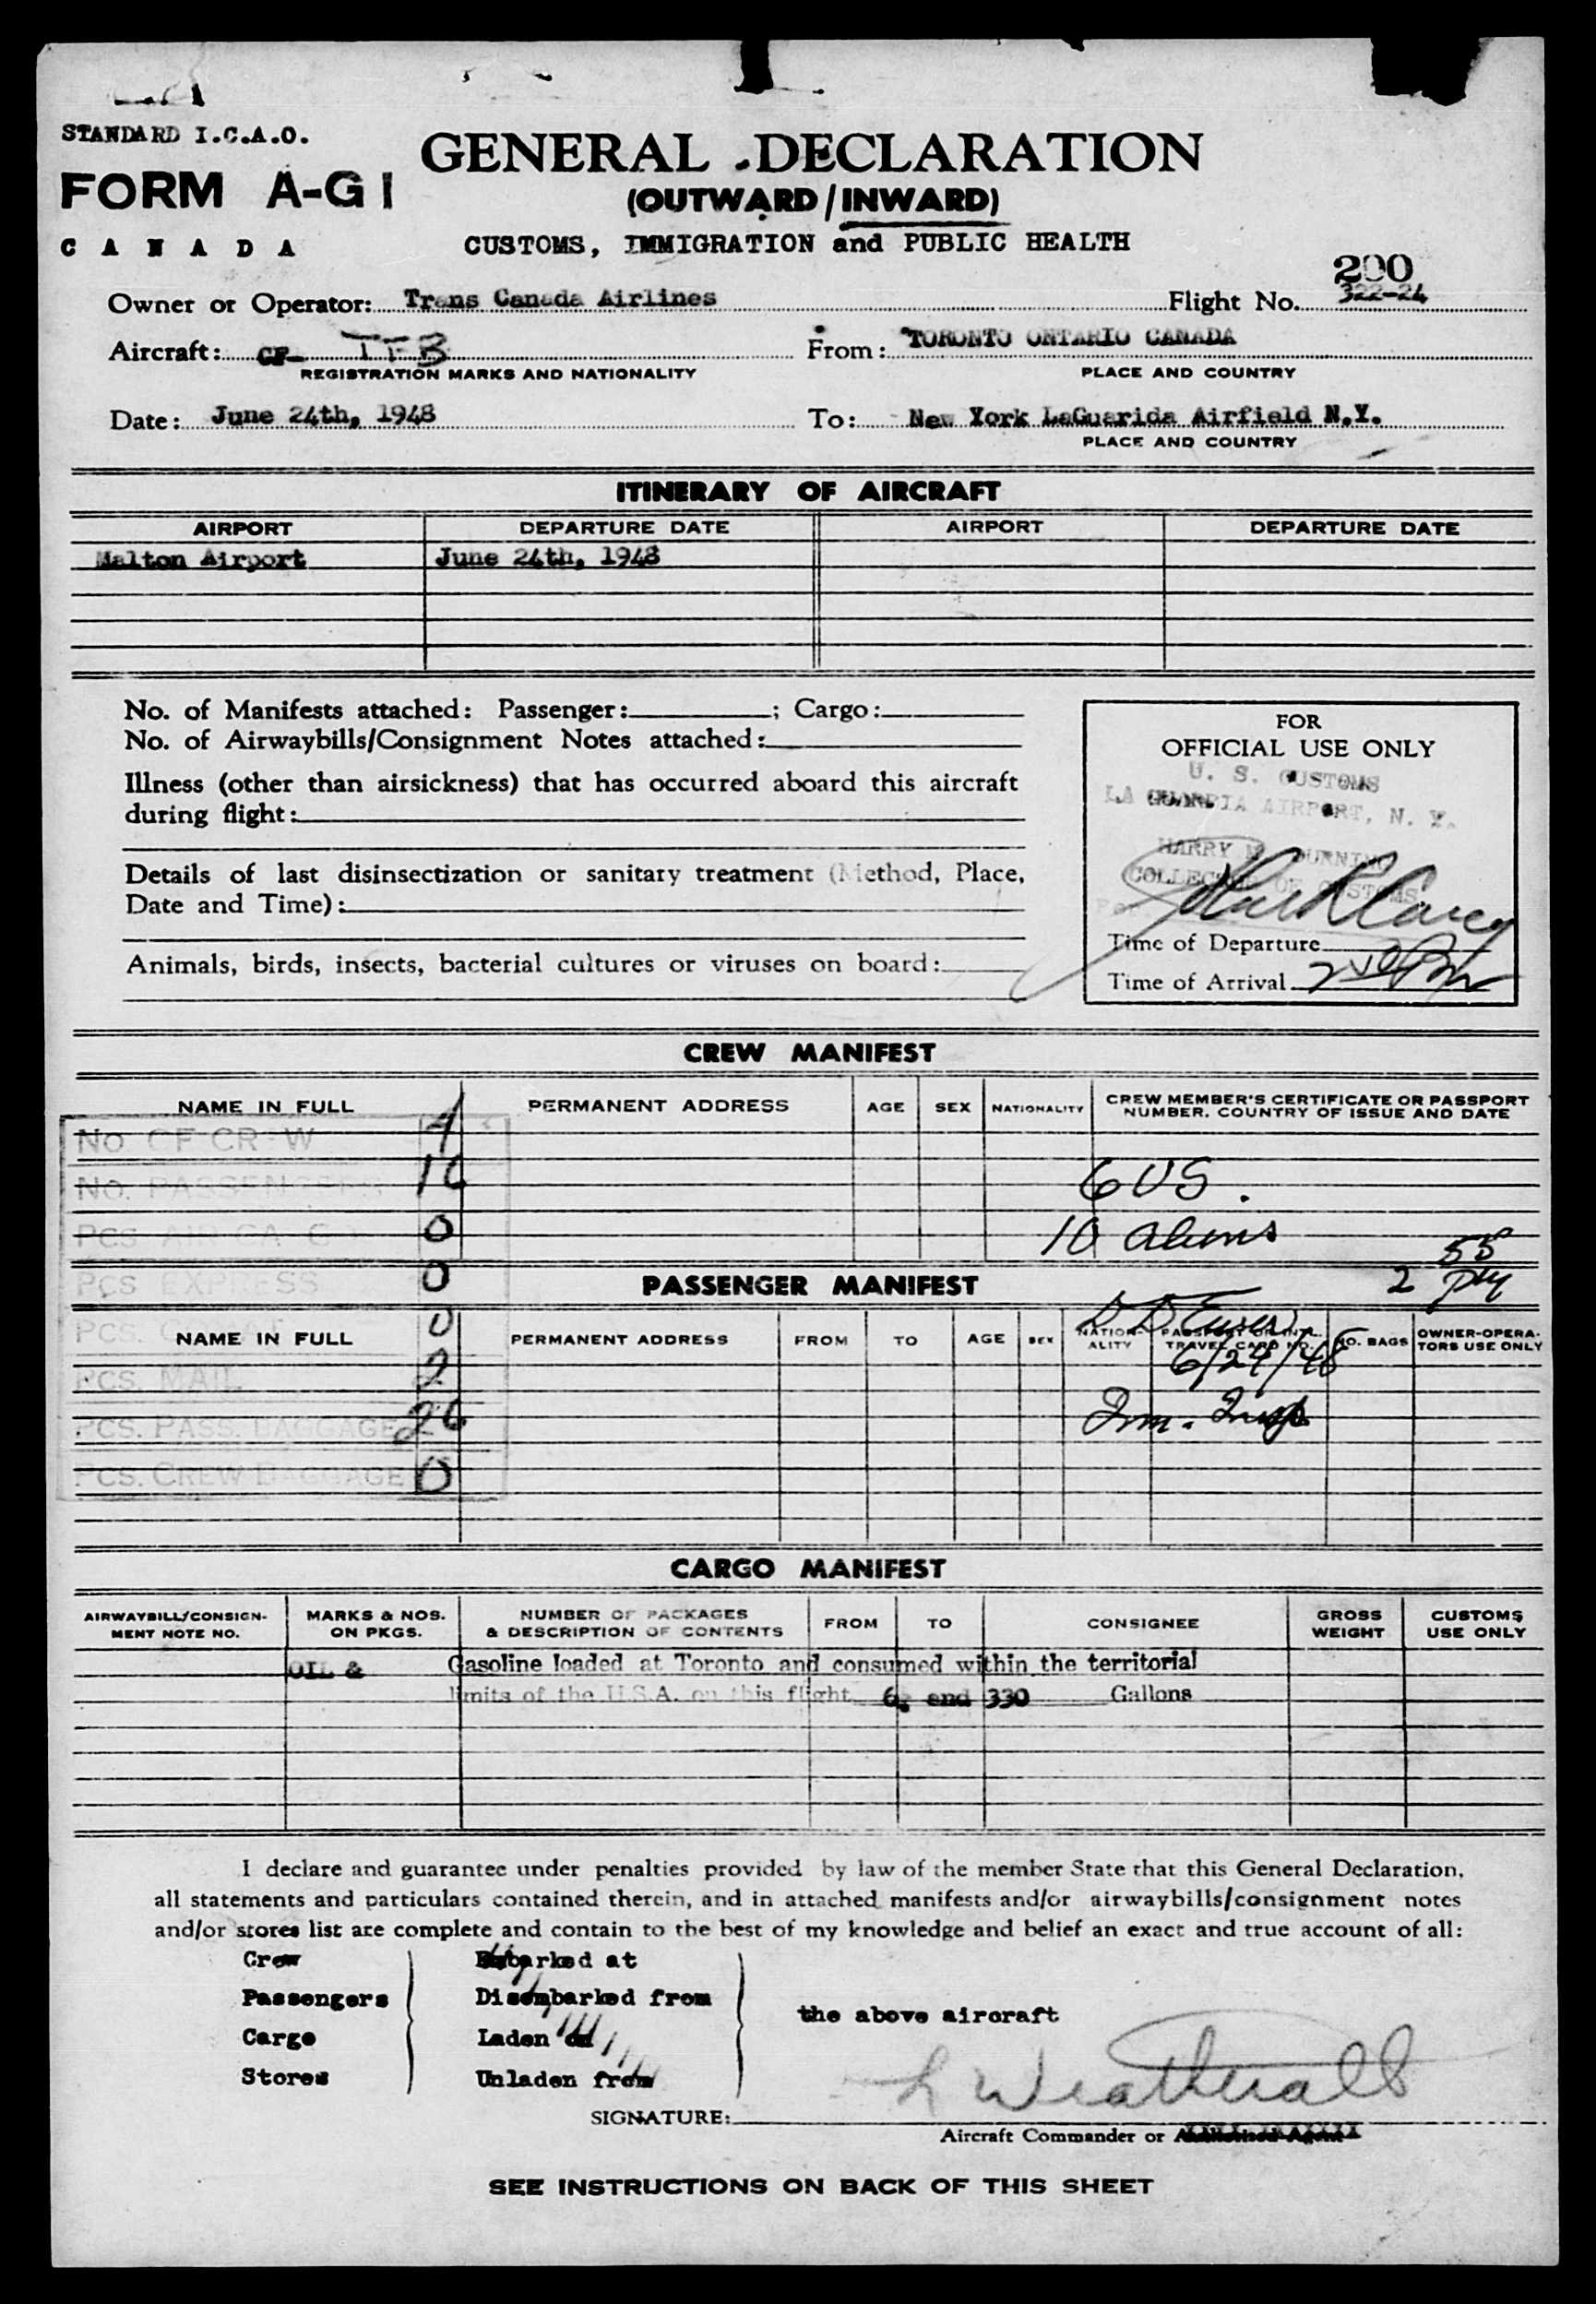 STANDARD I.C.A.O.
FORM A-G1
CANADA
GENERAL DECLARATION
(OUTWARD/INWARD)
CUSTOMS, IMMIGRATION and PUBLIC HEALTH
200
Owner or Operator: Trans Canada Airlines Flight No. 322-24
Aircraft: CF- TFB From: TORONTO ONTARIO CANADA
REGISTRATION MARKS AND NATIONALITY PLACE AND COUNTRY
Date: June 24th, 1948 To: New York LaGuarida Airfield N.Y.
PLACE AND COUNTRY
ITINERARY OF AIRCRAFT
AIRPORT DEPARTURE DATE AIRPORT DEPARTURE DATE
Malton Airport June 24th, 1948
No. of Manifests attached: Passenger: ; Cargo:
No. of Airwaybills/Consignment Notes attached:
Illness (other than airsickness) that has occurred aboard this aircraft
during flight:
Details of last disinsectization or sanitary treatment (Method, Place,
Date and Time):
Animals, birds, insects, bacterial cultures or viruses on board:
FOR
OFFICIAL USE ONLY
U. S. CUSTOMS
LA GUARDIA AIRPORT, N. Y.
HARRY M. DURNING
COLLECTOR OF CUSTOMS
Time of Departure
Time of Arrival
CREW MANIFEST
NAME IN FULL PERMANENT ADDRESS AGE SEX NATIONALITY CREW MEMBER'S CERTIFICATE OR PASSPORT
NUMBER, COUNTRY OF ISSUE AND DATE
No OF CREW 4
No. PASSENGERS 16
6 US.
Pcs AIR CARGO 0
10 aliens
2 55 pm
Pcs EXPRESS 0
PASSENGER MANIFEST
Pcs. 0
NAME IN FULL PERMANENT ADDRESS FROM TO AGE SEX NATION-ALITY PASSPORT OR INTL. TRAVEL CARD NO. NO. BAGS OWNER-OPERA-TORS USE ONLY
6/24/48
PCS. MAIL 2
Im. Insp.
PCS. PASS. BAGGAGE 26
PCS. CREW BAGGAGE 0
CARGO MANIFEST
AIRWAYBILL/CONSIGN-MENT NOTE NO. MARKS & NOS. ON PKGS. NUMBER OF PACKAGES & DESCRIPTION OF CONTENTS FROM TO CONSIGNEE GROSS WEIGHT CUSTOMS USE ONLY
OIL & Gasoline loaded at Toronto and consumed within the territorial
limits of the U.S.A. on this flight 6. and 330 Gallons
I declare and guarantee under penalties provided by law of the member State that this General Declaration,
all statements and particulars contained therein, and in attached manifests and/or airwaybills/consignment notes
and/or stores list are complete and contain to the best of my knowledge and belief an exact and true account of all:
Crew Embarked at
Passengers Disembarked from
the above aircraft
Cargo Laden on
Stores Unladen from
L Weatherall
SIGNATURE:
Aircraft Commander or Authorised Agent
SEE INSTRUCTIONS ON BACK OF THIS SHEET